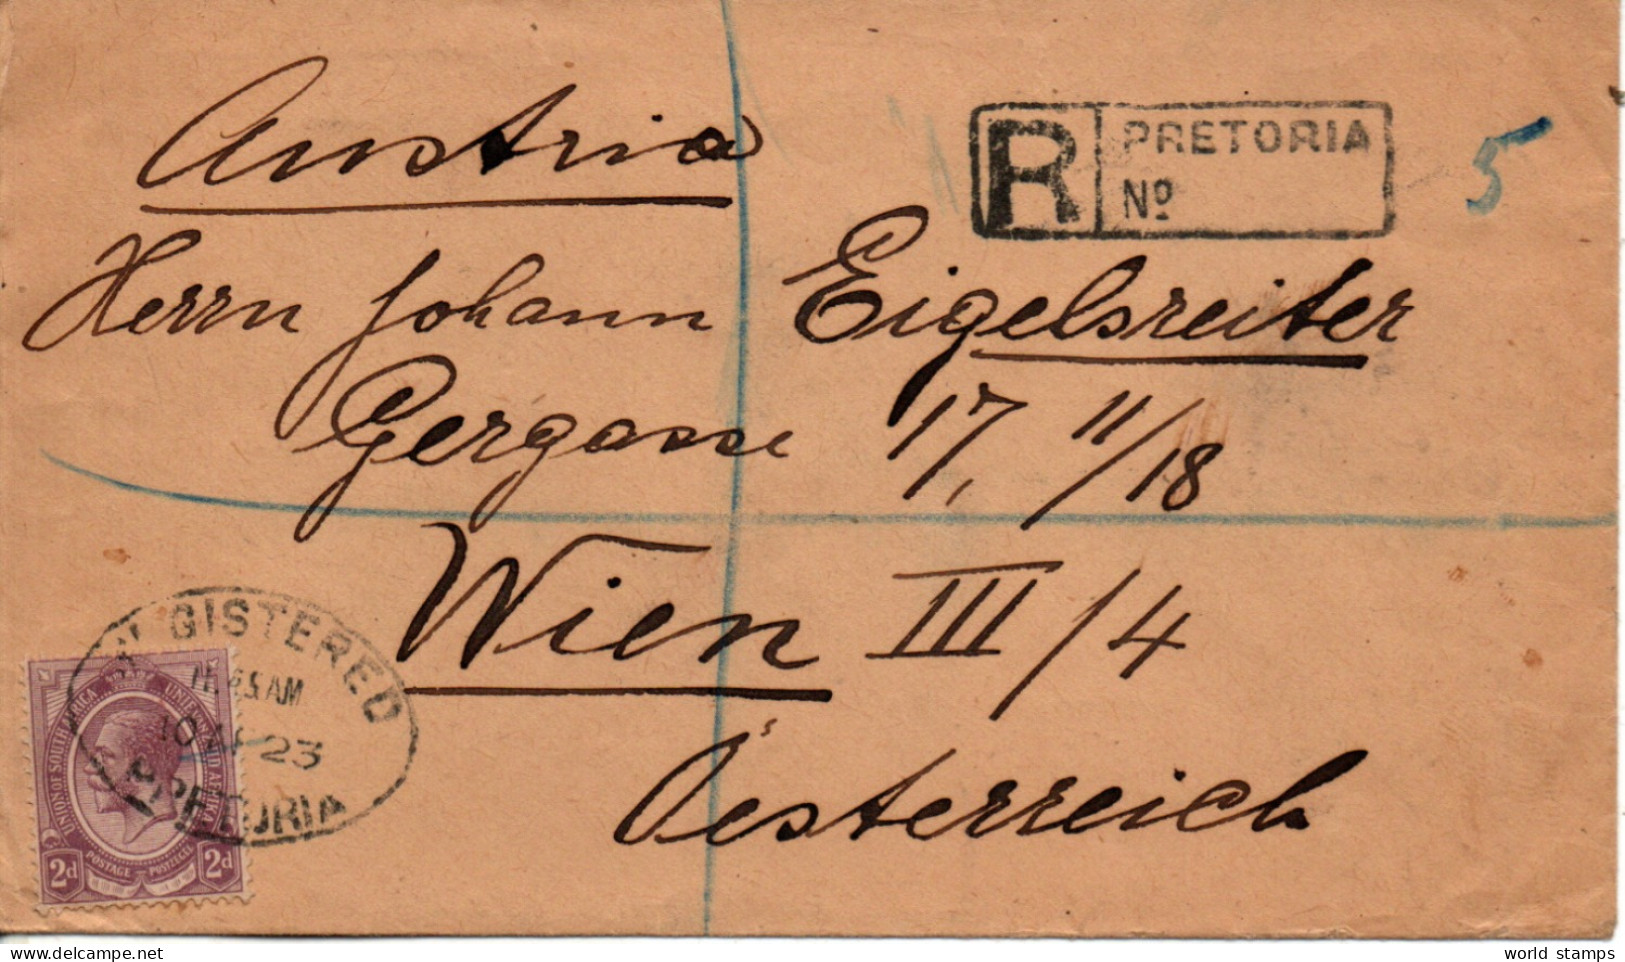 Austria
R PRETORIA
Nº
5
Herrn Johann Eigelsreiter
Gergasse 17, 11/18
Wien III/4
Oesterreich
REGISTERED
11.45AM
10 AP 23
PRETORIA
UNION OF SOUTH AFRICA
UNIE VAN ZUID AFRIKA
POSTAGE - POSTZEGEL
2d 2d
world stamps